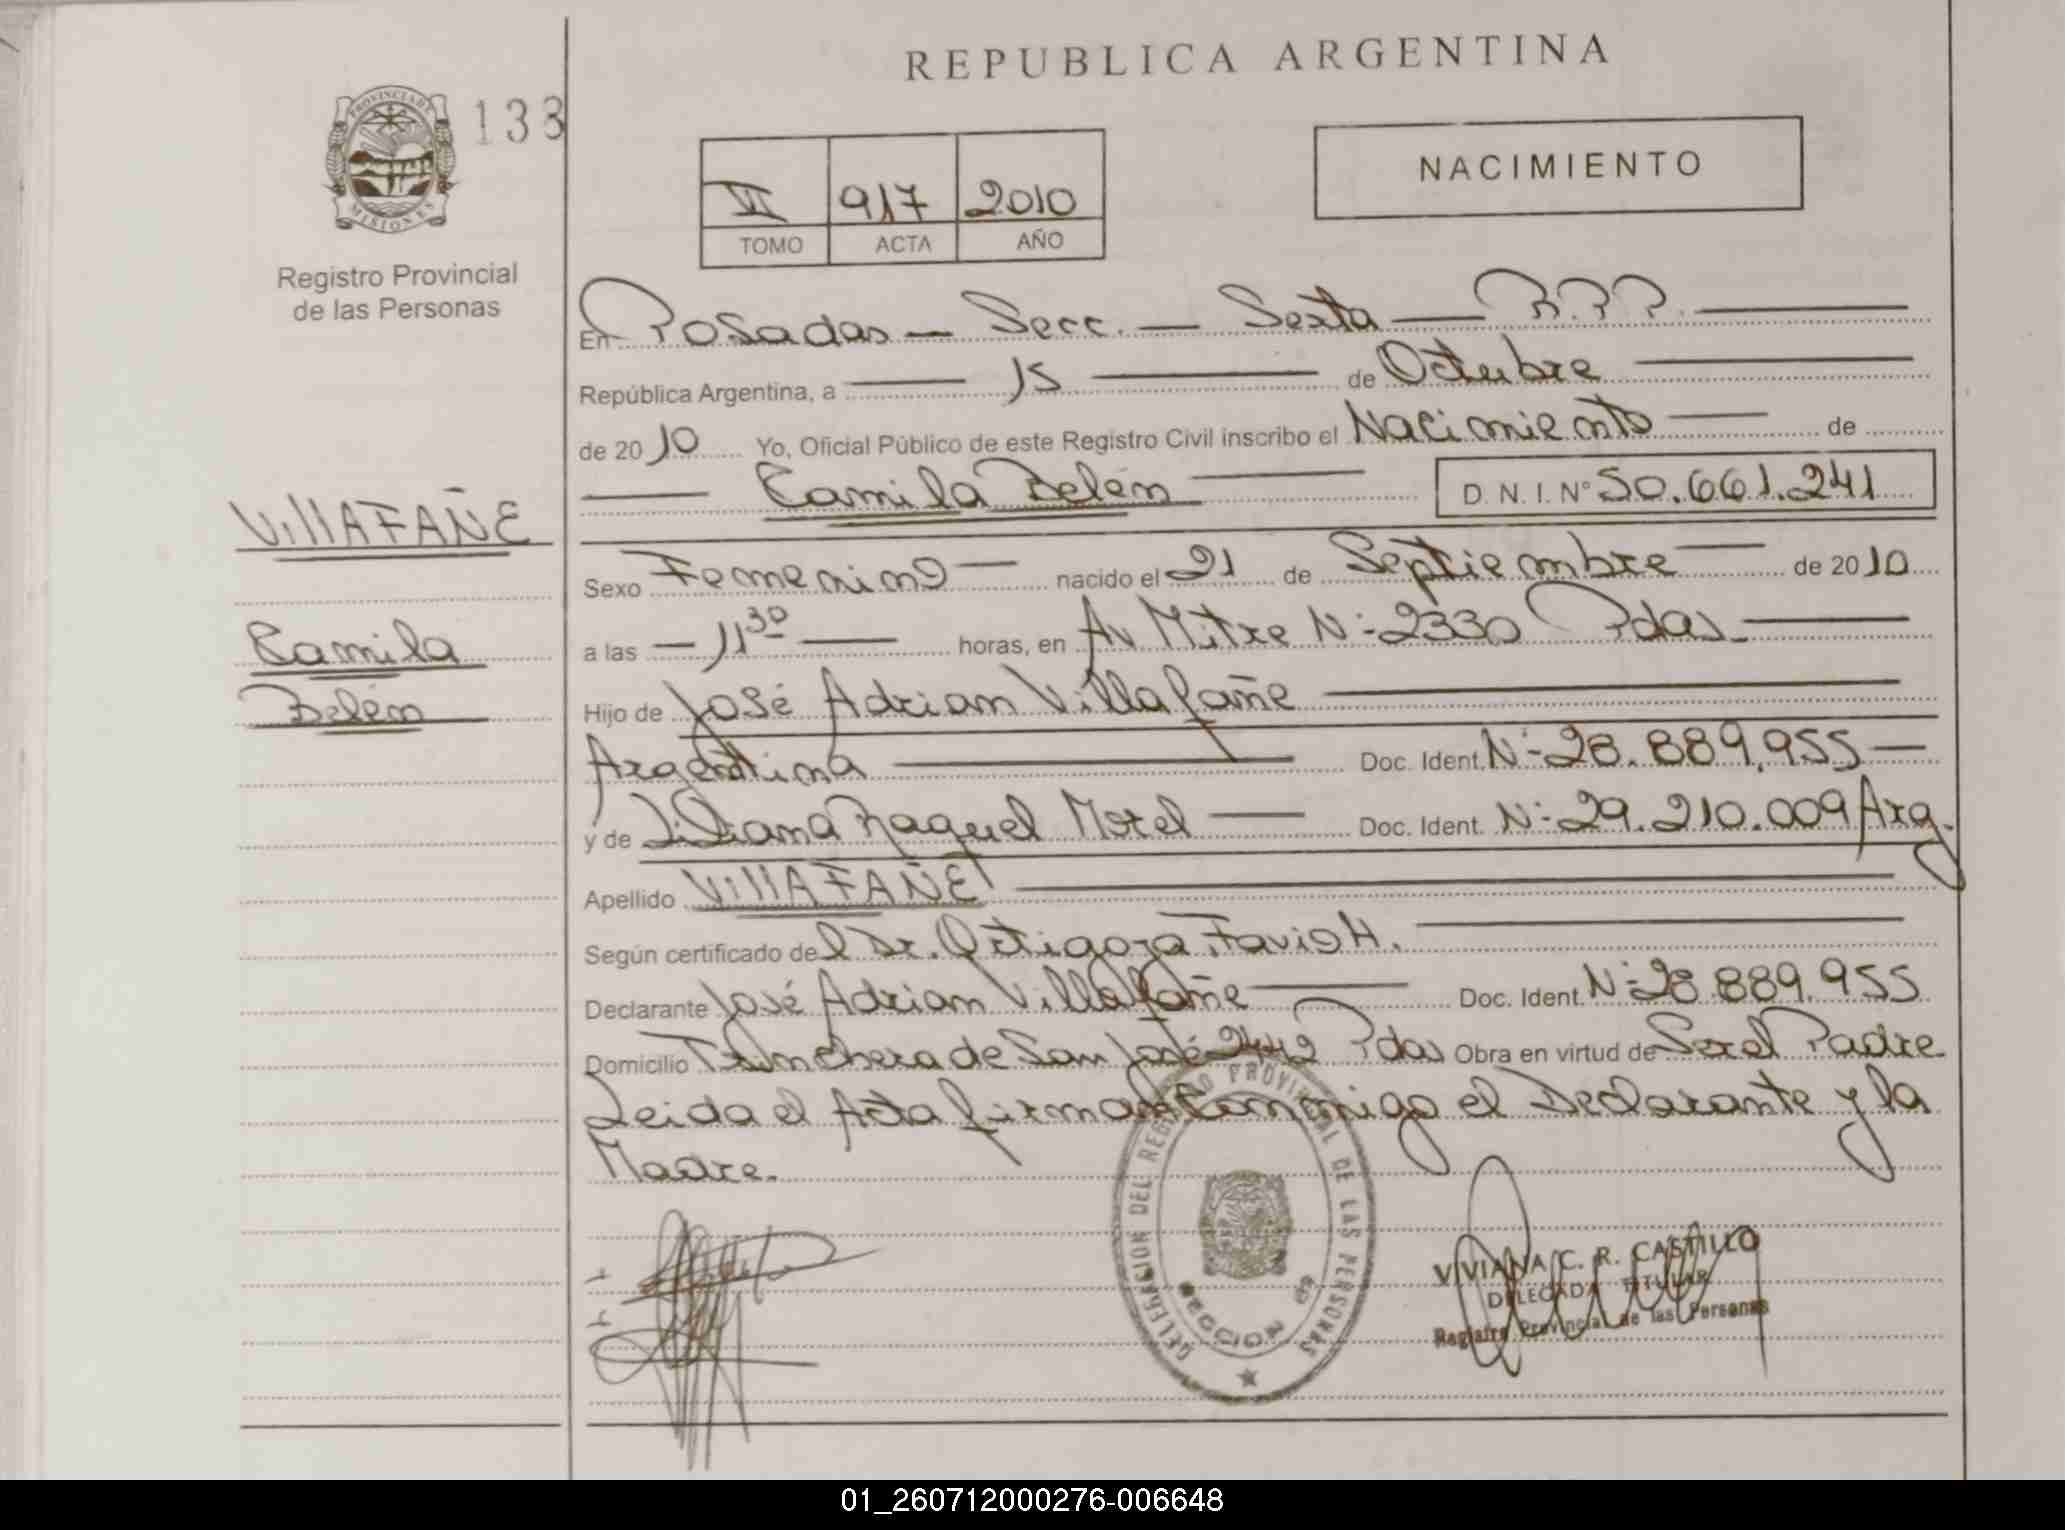 REPUBLICA ARGENTINA
PROVINCIA DE MISIONES
133
Registro Provincial
de las Personas
VI 917 2010
TOMO ACTA AÑO
NACIMIENTO
En Posadas — Secc. — Sexta — R.P.P.
República Argentina, a 15 de Octubre
de 2010 Yo, Oficial Público de este Registro Civil inscribo el Nacimiento de
Camila Belén D.N.I. N° 50.661.241
VillAFAÑE
Camila
Belén
Sexo Femenino nacido el 21 de Septiembre de 2010
a las 11 30 horas, en Av Mitre N:- 2330 Pdas.
Hijo de José Adrian Villafañe
Argentina Doc. Ident. N:- 28.889.955
y de Liliana Raquel Motel Doc. Ident. N:- 29.210.009 Arg.
Apellido VillAFAÑE
Según certificado del Dr. Ortigoza Favio H.
Declarante José Adrian Villafañe Doc. Ident. N:- 28.889.955
Domicilio Trinchera de San José 2442 Pdas Obra en virtud de Ser el Padre
Leida el Acta firman Conmigo el Declarante y la
Madre.
DELEGACION DEL REGISTRO PROVINCIAL DE LAS PERSONAS
SECCION 6ta
VIVIANA C. R. CASTILLO
DELEGADA TITULAR
Registro Provincial de las Personas
01_260712000276-006648